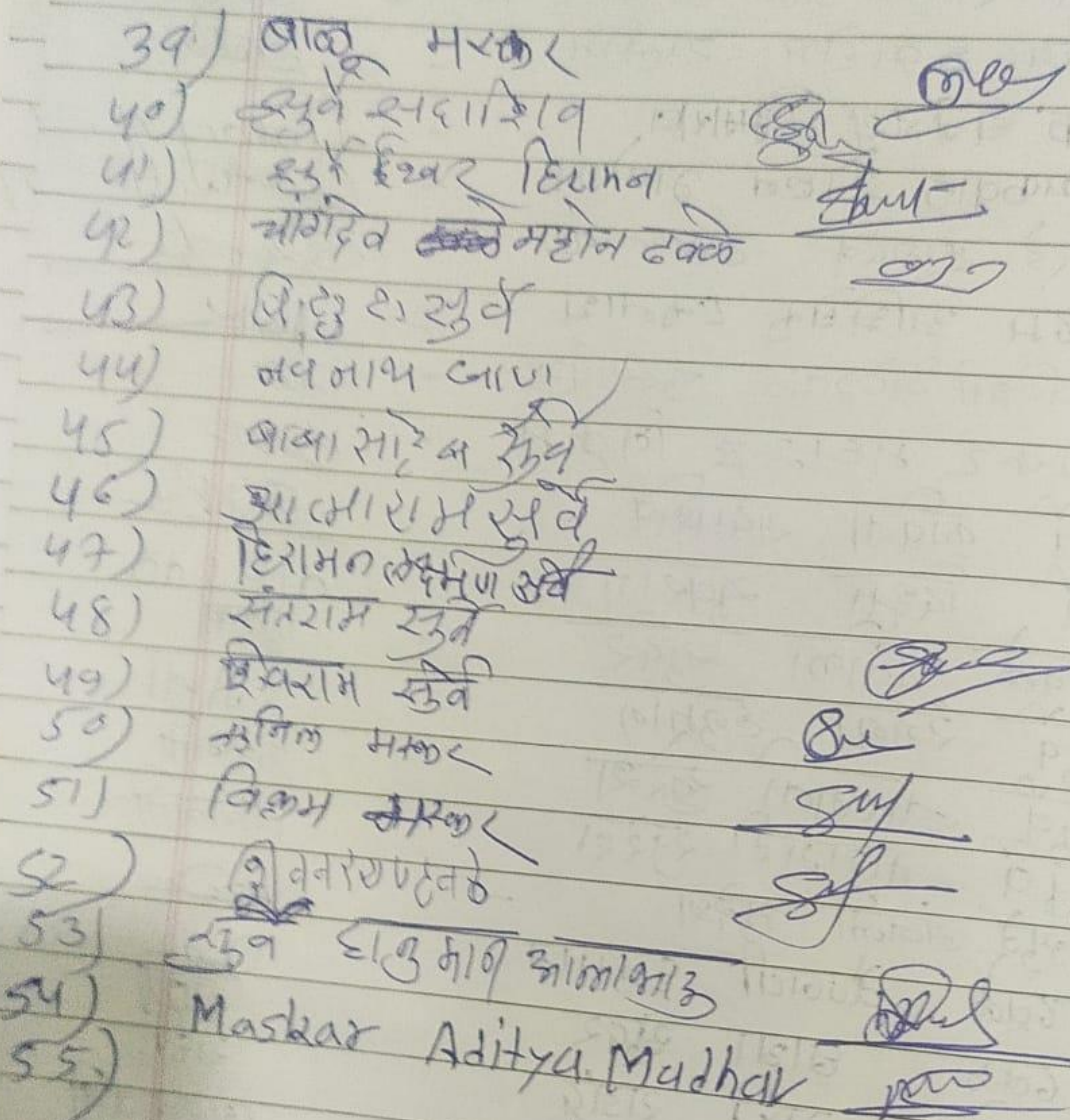 39) बाळू मस्कर
40) सुर्वे सदाशिव
41) सुर्वे ईश्वर हिरामन
42) चांगदेव महोन ढवळे
43) सुर्वे
44) नवनाथ जाण
45) बाबासाहेब सुर्वे
46) आत्माराम सुर्वे
47) हिरामन लक्ष्मण सुर्वे
48) संतराम सुर्वे
49) शिवराम सुर्वे
50) सुनिल मस्कर
51) विक्रम मस्कर
52)
53) सुर्वे हानुमान
54) Maskar Aditya Madhav
55)